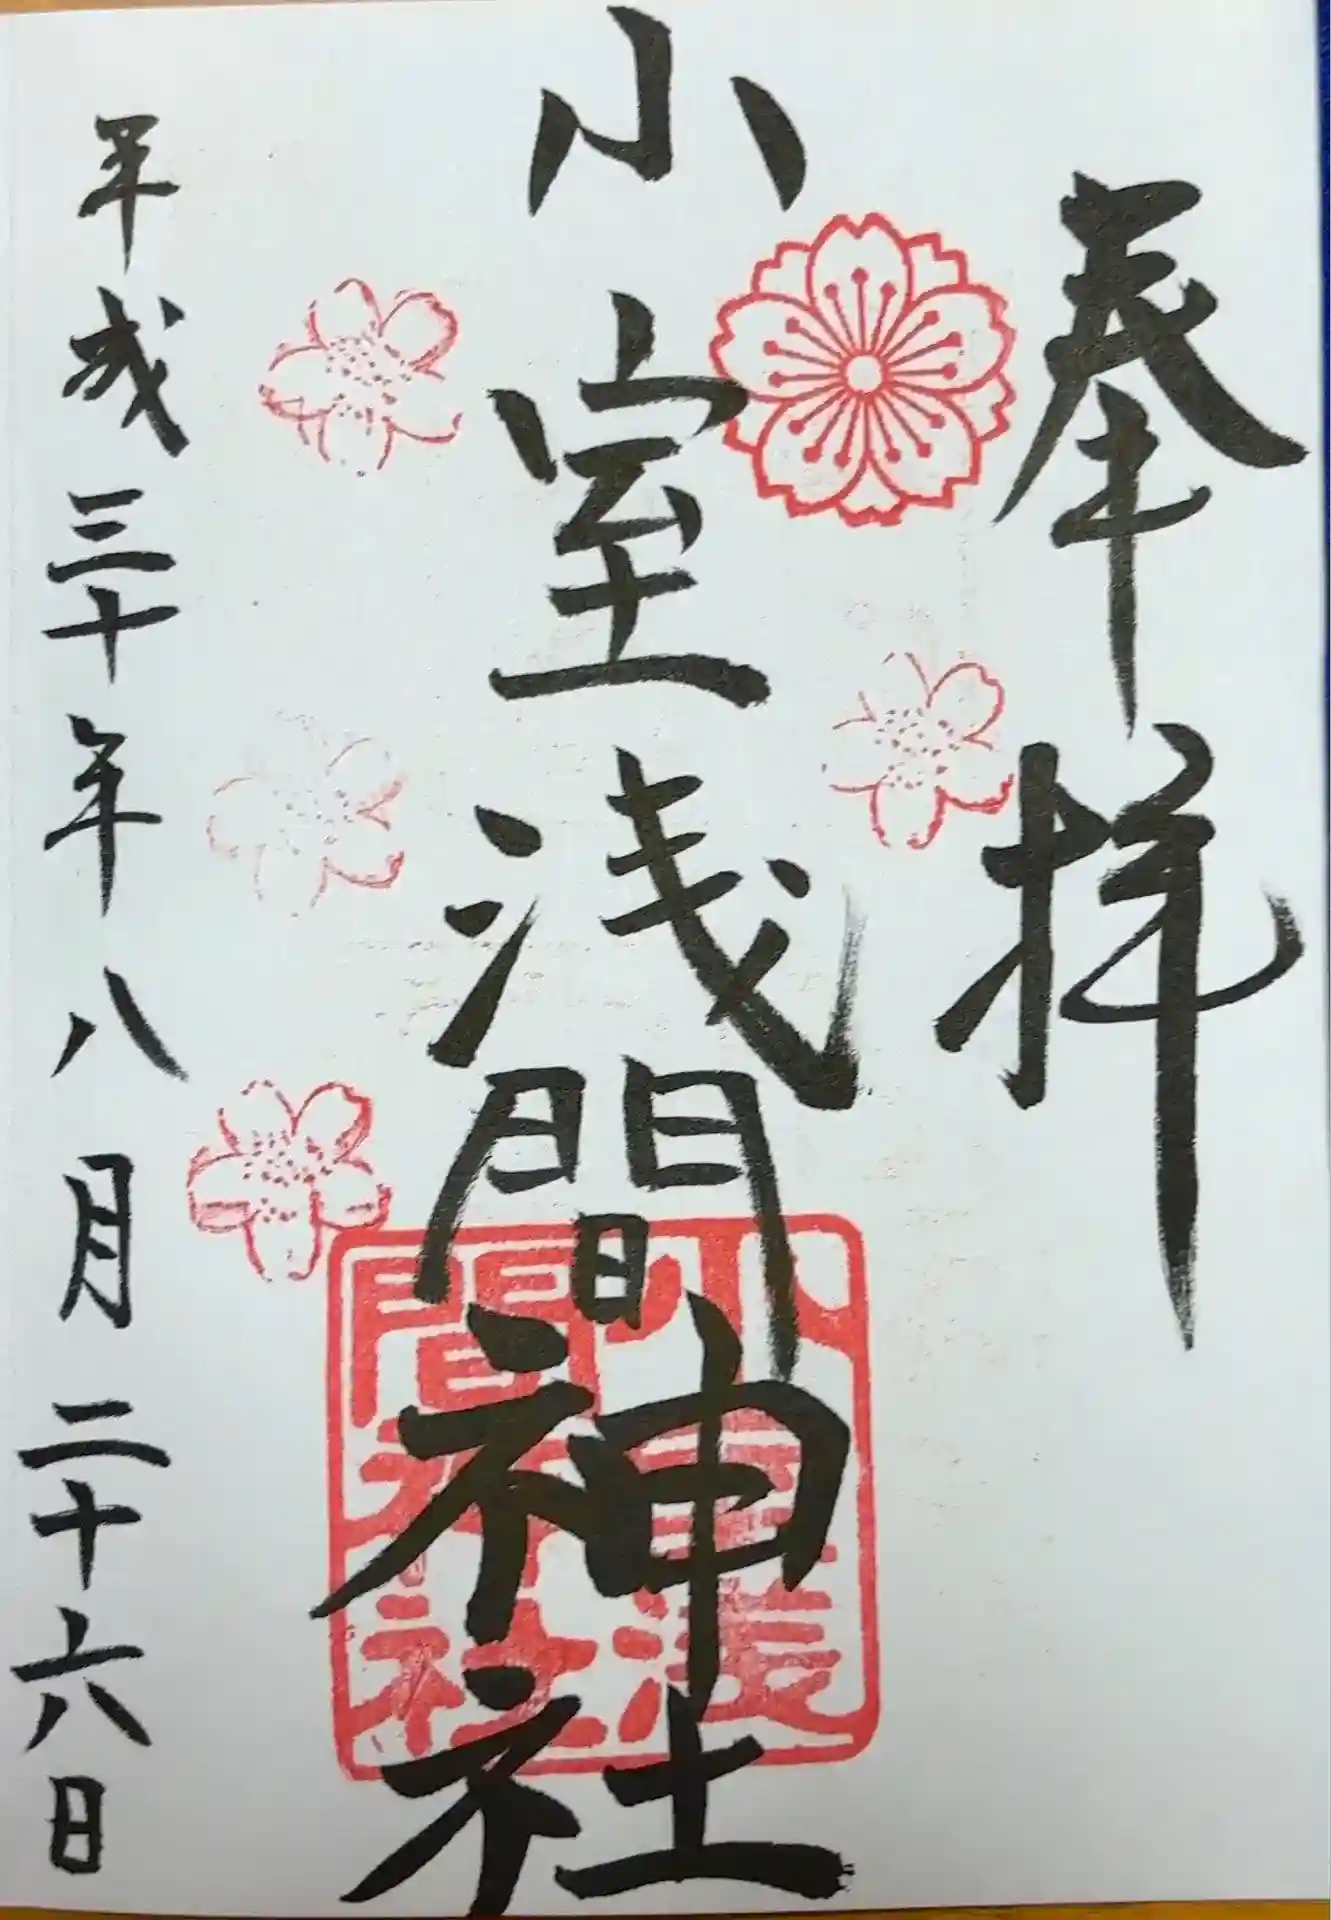 奉拝
小室浅間神社
平成三十年八月二十六日
小室浅
間神社